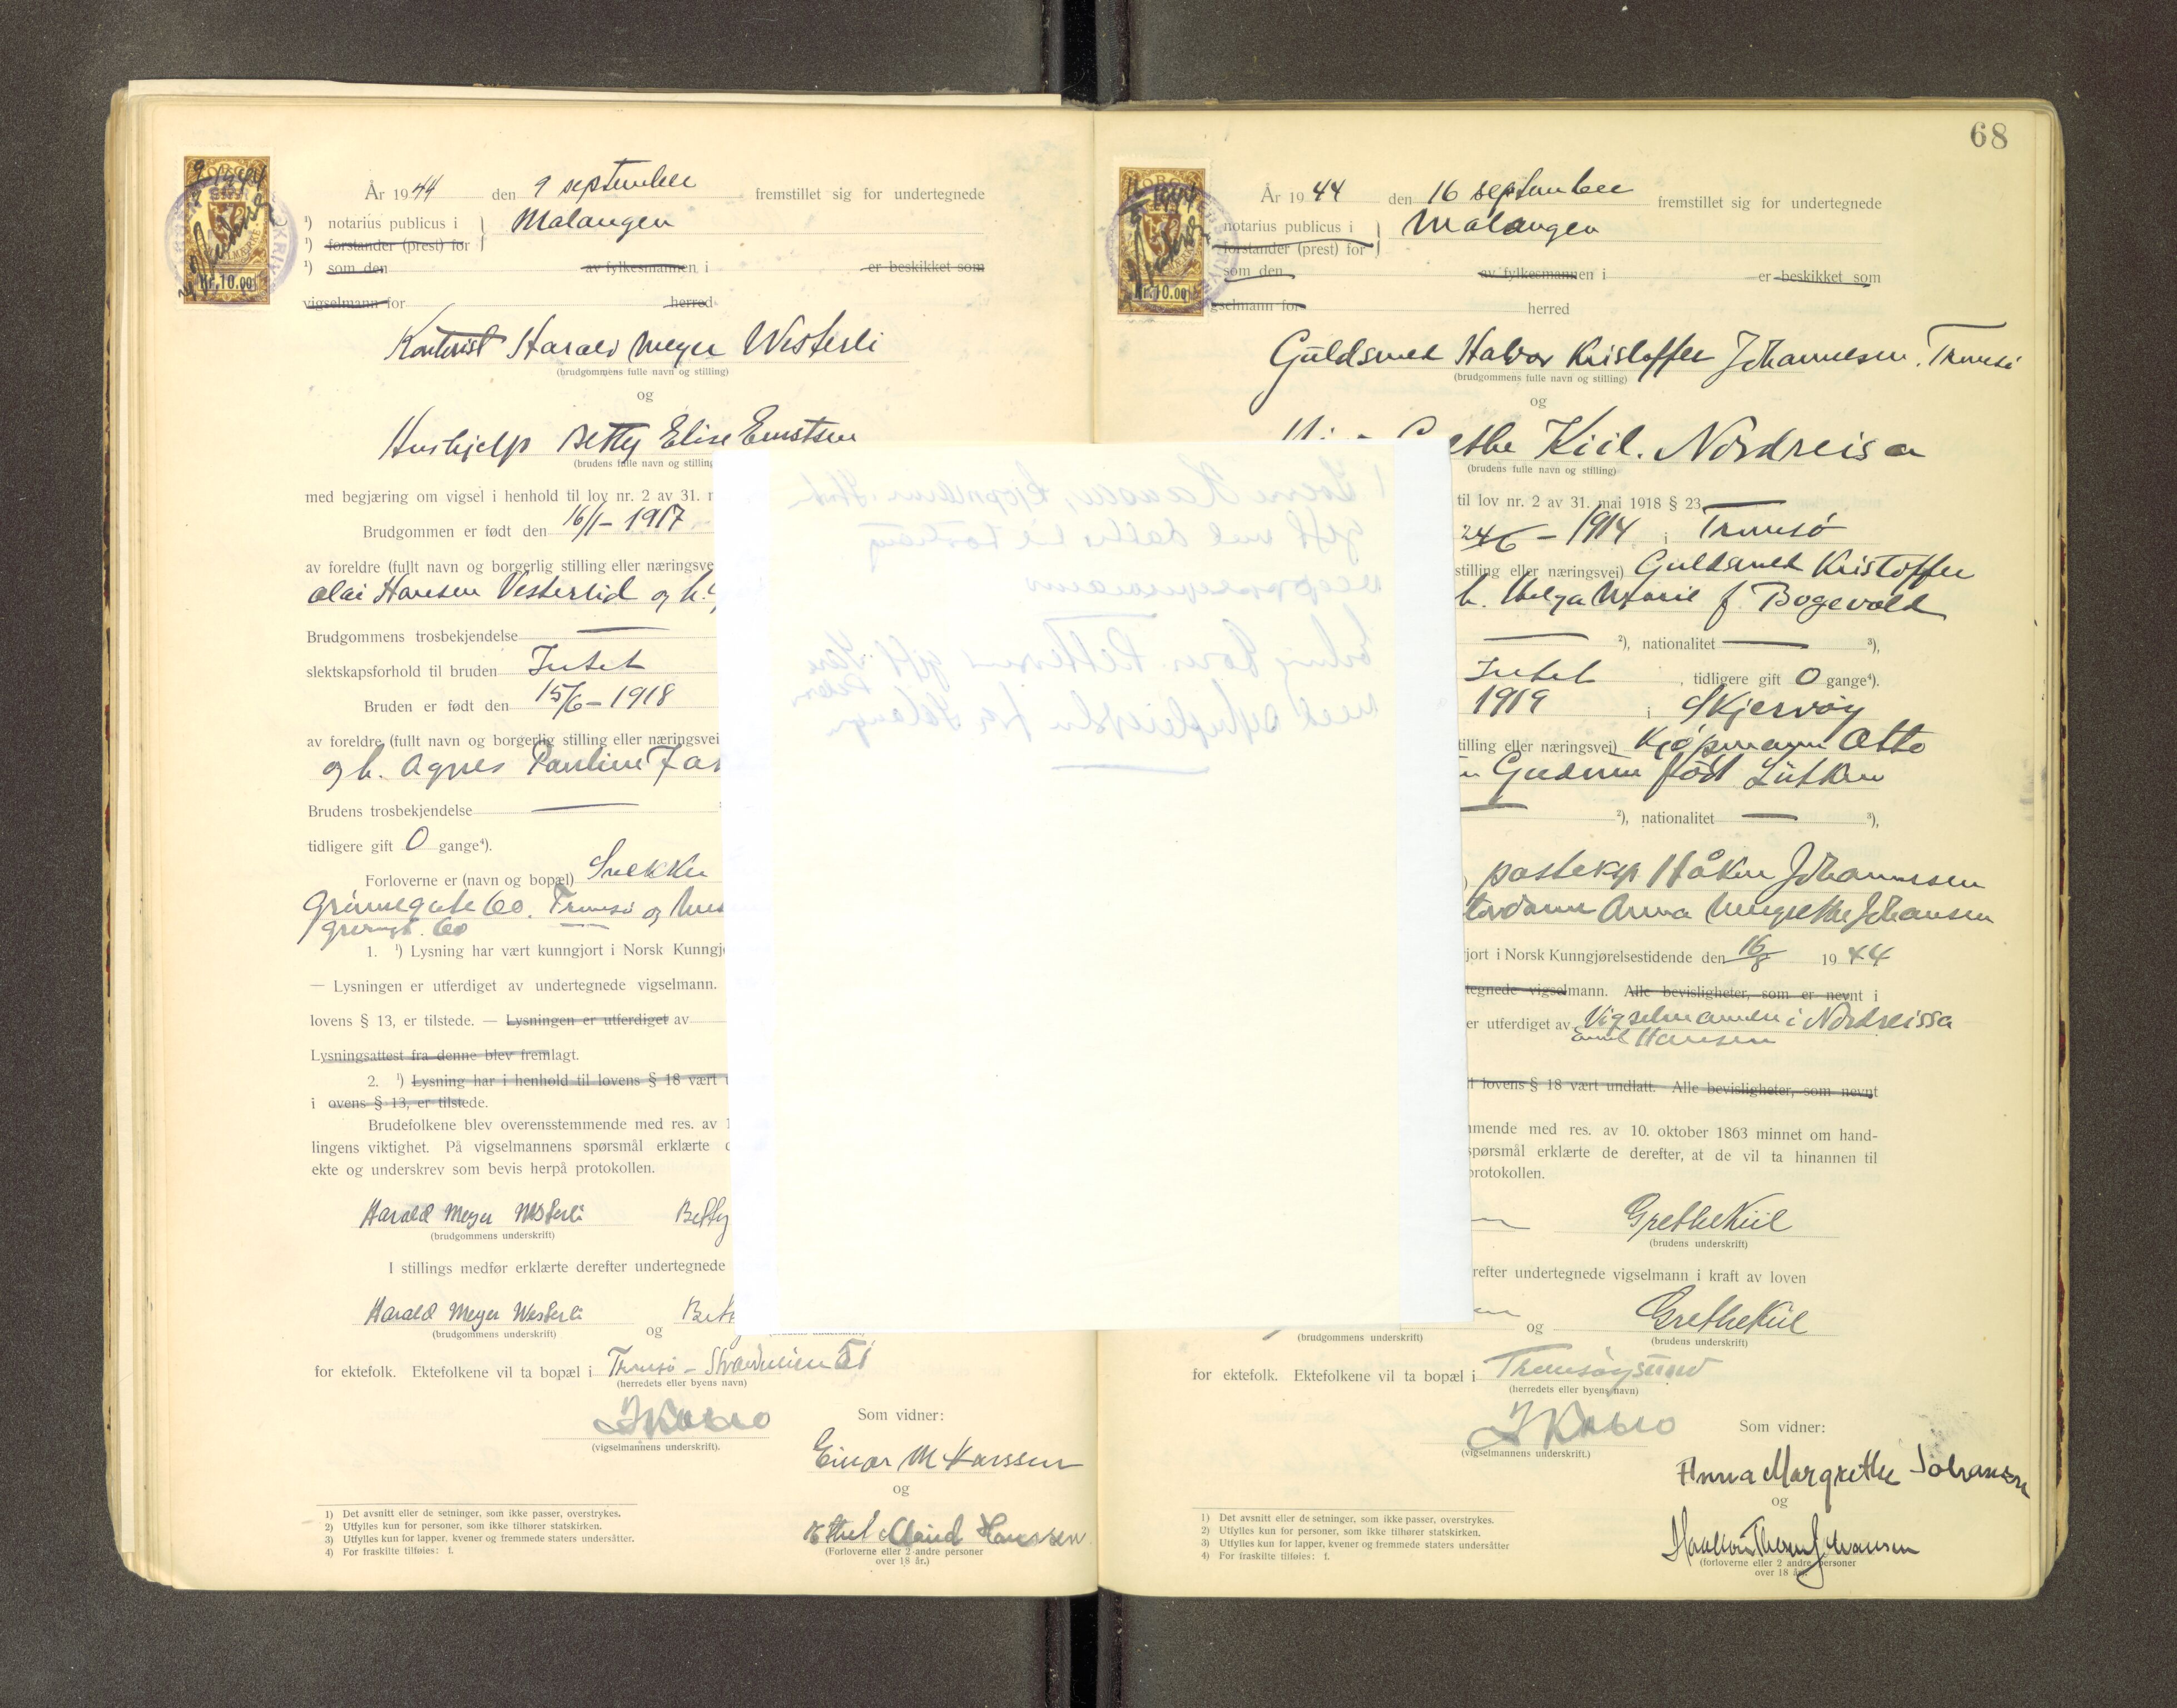 År 1944 den 9 september fremstillet sig for undertegnede
¹) notarius publicus i Malangen
¹) forstander (prest) for
¹) som den av fylkesmannen i er beskikket som
vigselmann for herred
Kr. 10.00
Kontorist Harald Meyer Westerli
(brudgommens fulle navn og stilling)
og
Hushjelp Betty Elise Ernstsen
(brudens fulle navn og stilling
med begjæring om vigsel i henhold til lov nr. 2 av 31.
Brudgommen er født den 16/1 - 1917
av foreldre (fullt navn og borgerlig stilling eller næringsve
Olai Hansen Vesterlid og h.
Brudgommens trosbekjendelse
slektskapsforhold til bruden Intet
Bruden er født den 15/6 - 1918
av foreldre (fullt navn og borgerlig stilling eller næringsvei
og h. Agnes Pauline
Brudens trosbekjendelse
tidligere gift 0 gange⁴).
Forloverne er (navn og bopæl) Snekker
Grønnegate 60. Tromsø og
60
1. ¹) Lysning har vært kunngjort i Norsk Kunngj
— Lysningen er utferdiget av undertegnede vigselmann.
lovens § 13, er tilstede. — Lysningen er utferdiget av
Lysningsattest fra denne blev fremlagt.
2. ¹) Lysning har i henhold til lovens § 18 vært
i ovens § 13, er tilstede.
Brudefolkene blev overensstemmende med res. av 1
lingens viktighet. På vigselmannens spørsmål erklærte
ekte og underskrev som bevis herpå protokollen.
Harald Meyer Westerli Betty
(brudgommens underskrift)
I stillings medfør erklærte derefter undertegnede
Harald Meyer Westerli og Bet
(brudgommens underskrift)
for ektefolk. Ektefolkene vil ta bopæl i Tromsø -
(herredets eller byens navn)
(vigselmannens underskrift).
Som vidner:
Einar M Hanssen
og
Maud Hanssen
(Forloverne eller 2 andre personer
over 18 år.)
1) Det avsnitt eller de setninger, som ikke passer, overstrykes.
2) Utfylles kun for personer, som ikke tilhører statskirken.
3) Utfylles kun for lapper, kvener og fremmede staters undersåtter.
4) For fraskilte tilføies: f.
68
År 1944 den 16 september fremstillet sig for undertegnede
notarius publicus i Malangen
forstander (prest) for
som den av fylkesmannen i er beskikket som
gselmann for herred
Kr. 10.00
Guldsmed Halvor Kristoffer Johannesen. Tromsø
(brudgommens fulle navn og stilling)
og
Grethe Kiil. Nordreisa
(brudens fulle navn og stilling)
til lov nr. 2 av 31. mai 1918 § 23
24/6 - 1914 i Tromsø
stilling eller næringsvei) Guldsmed Kristoffer
h. Helga Marie f. Bogevold
²), nationalitet ³),
Intet, tidligere gift 0 gange⁴).
1919 i Skjervøy
tilling eller næringsvei) Kjøpmann Otto
Gudrun født Lütken
²), nationalitet ³),
posteksp Håkon Johannesen
Anna Margrethe Johansen
jort i Norsk Kunngjørelsestidende den 16/8 1944
tegnede vigselmann. Alle bevisligheter, som er nevnt i
er utferdiget av Vigselmannen i Nordreissa
Emil Hansen
l lovens § 18 vært undlatt. Alle bevisligheter, som nevnt
mmende med res. av 10. oktober 1863 minnet om hand-
spørsmål erklærte de derefter, at de vil ta hinannen til
protokollen.
Grethe Kiil
(brudens underskrift)
refter undertegnede vigselmann i kraft av loven
og Grethe Kiil
(brudgommens underskrift) (brudens underskrift)
for ektefolk. Ektefolkene vil ta bopæl i Tromsøysund
(herredets eller byens navn)
(vigselmannens underskrift.)
Som vidner:
Anna Margrethe Johansen
og
Johansen
(forloverne eller 2 andre personer
over 18 år.
1) Det avsnitt eller de setninger, som ikke passer, overstrykes.
2) Utfylles kun for personer, som ikke tilhører statskirken.
3) Utfylles kun for lapper, kvener og fremmede staters undersåtter
4) For fraskilte tilføies: f.